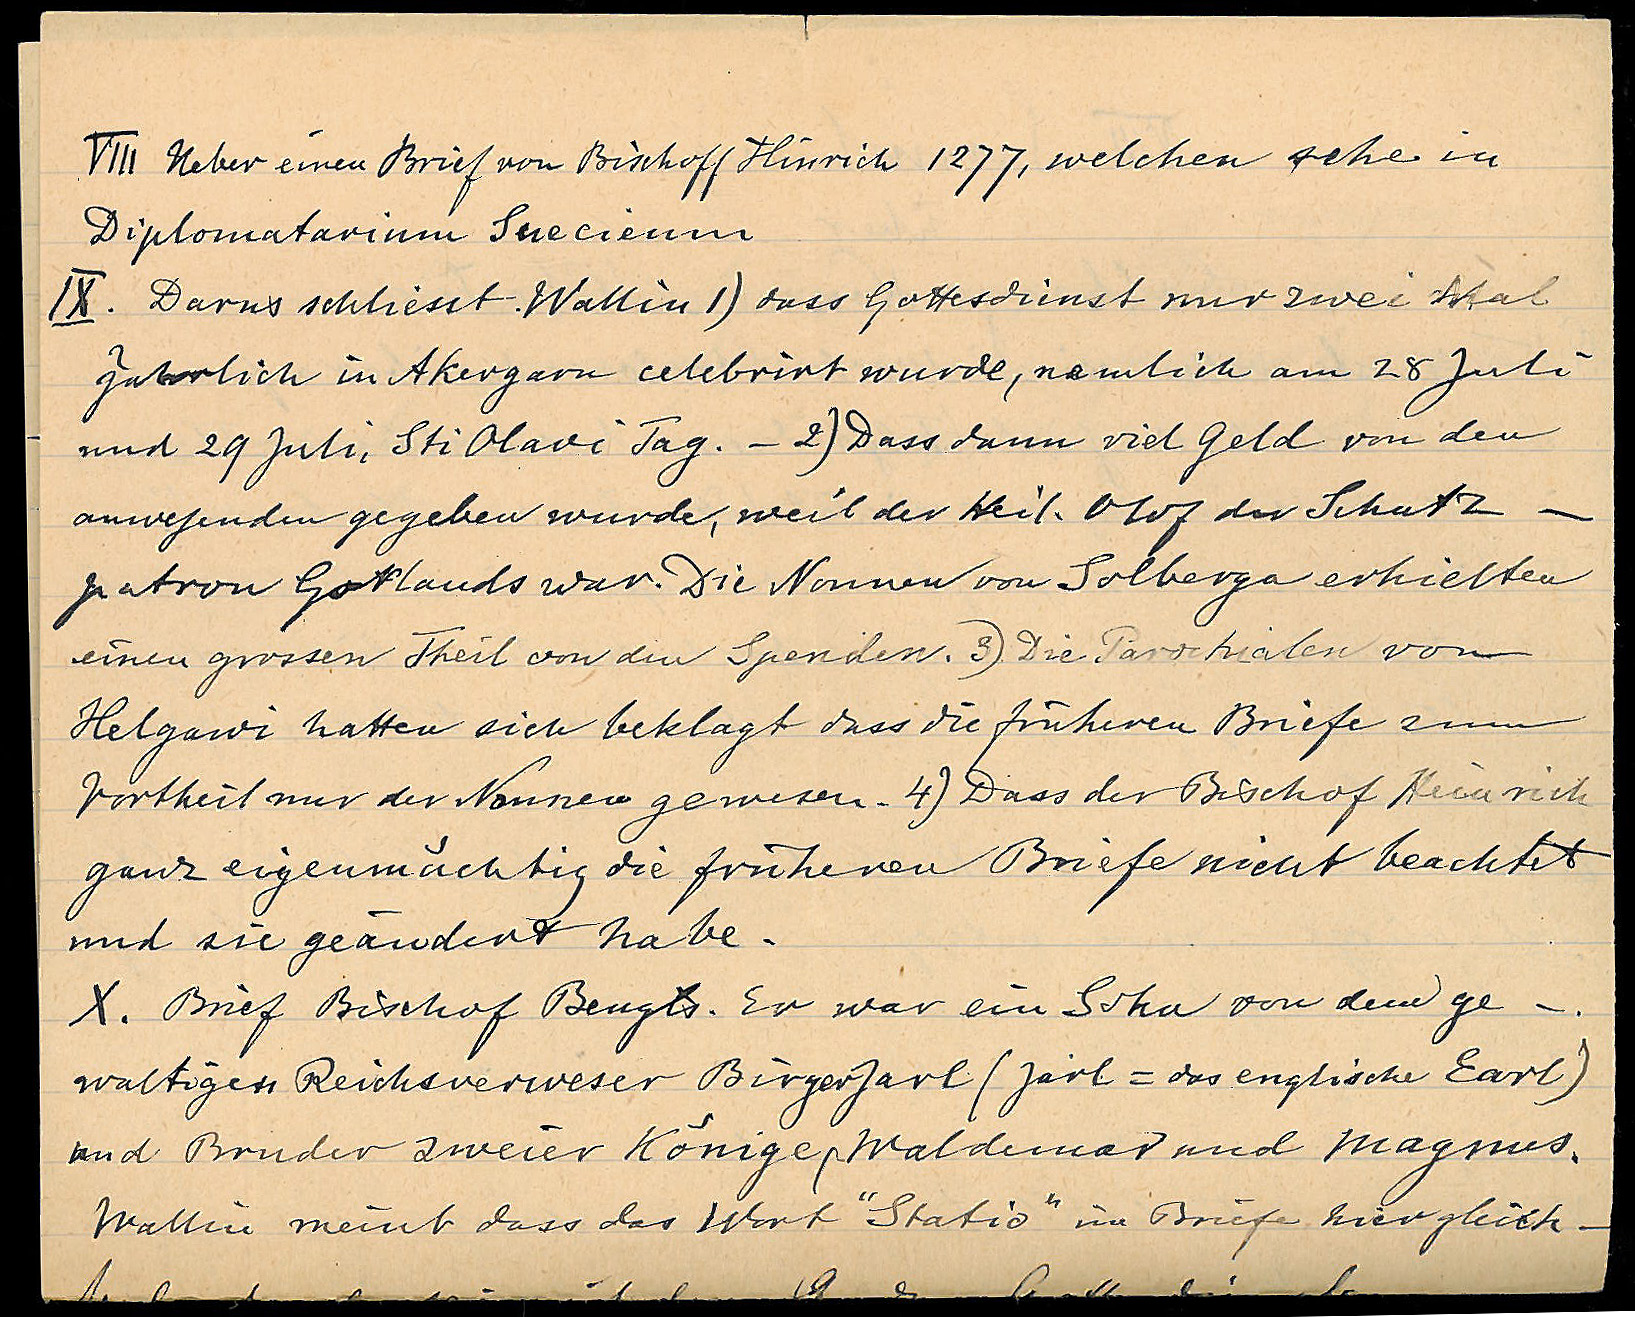 VIII Ueber einen Brief von Bischoff Hinrich 1277, welchen sehe in
Diplomatarium Suecicum
IX. Darus schliesst Wallin 1) dass Gottesdienst nur zwei Mal
jahrlich in Akergarn celebrirt wurde, nemlich am 28 Juli
und 29 Juli, Sti Olavi Tag. – 2) Dass dann viel Geld von den
anwesenden gegeben wurde, weil der Heil. Olof der Schutz –
patron Gotlands war. Die Nonnen von Solberga erhielten
einen grossen Theil von den Spenden. 3) Die Parochialen von
Helgawi hatten sich beklagt dass die früheren Briefe zum
Vortheil nur der Nonnen gewesen. 4) Dass der Bischof Heinrich
ganz eigenmächtig die früheren Briefe nicht beachtet
und sie geändert habe.
X. Brief Bischof Bengts. Er war ein Sohn von dem ge –
waltigen Reichsverweser Birger Jarl (Jarl = das englische Earl)
und Bruder zweier Könige, Waldemar und Magnus.
Wallin meint dass das Wort "Statio" im Briefe hier gleich –